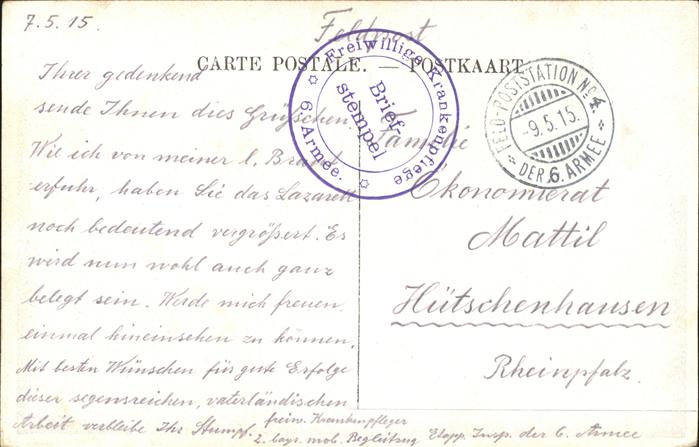 7.5.15.
Feldpost
CARTE POSTALE. — POSTKAART
Ihrer gedenkend
sende Ihnen dies Grüßchen.
Wie ich von meiner l. Braut
erfuhr, haben Sie das Lazarett
noch bedeutend vergrößert. Es
wird nun wohl auch ganz
belegt sein. Werde mich freuen,
einmal hineinsehen zu können.
Mit besten Wünschen für gute Erfolge
dieser segensreichen, vaterländischen
Arbeit verbleibe Ihr Stumpf.
freiw. Krankenpfleger
2. bayr. mob. Begleitzug Etapp. Insp. der 6. Armee
Freiwillige Krankenpflege
6. Armee.
Brief-
stempel
FELD-POSTSTATION No 4.
-9.5.15.
DER 6. ARMEE
Familie
Ökonomierat
Mattil
Hütschenhausen
Rheinpfalz.